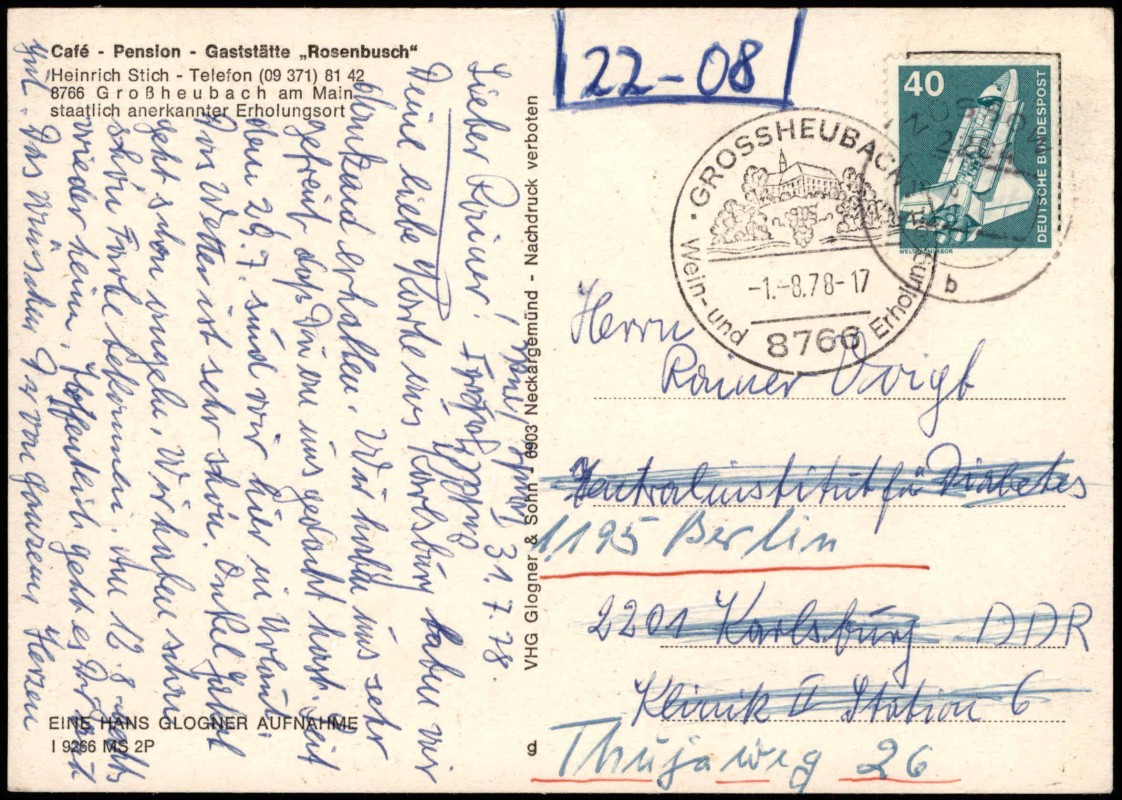 Café - Pension - Gaststätte „Rosenbusch“
Heinrich Stich - Telefon (09 371) 81 42
8766 Großheubach am Main
staatlich anerkannter Erholungsort
31.7.78.
Lieber Rainer!
Deine liebe Karte aus Karlsburg haben wir
dankend erhalten. Wir haben uns sehr
gefreut daß Du an uns gedacht hast. Seit
den 29.7. sind wir hier in Urlaub.
Das Wetter ist sehr schön. Onkel
geht schon angeln. Wir haben schon
schön Farbe bekommen. Am 12.8. gehts
wieder heim. Hoffentlich geht es Dir
gut. Das wünschen Dir von ganzem Herzen
EINE HANS GLOGNER AUFNAHME
I 9266 MS 2P
VHG Glogner & Sohn - 6903 Neckargemünd - Nachdruck verboten
g
22-08
GROSSHEUBACH
Wein- und Erholungs
-1.-8.78-17
8766
b
40
DEUTSCHE BUNDESPOST
WELTRAUMLABOR
Herrn
Rainer Voigt
Zentralinstitut für Diabetes
1195 Berlin
2201 Karlsburg DDR
Klinik II Station 6
Thujaweg 26